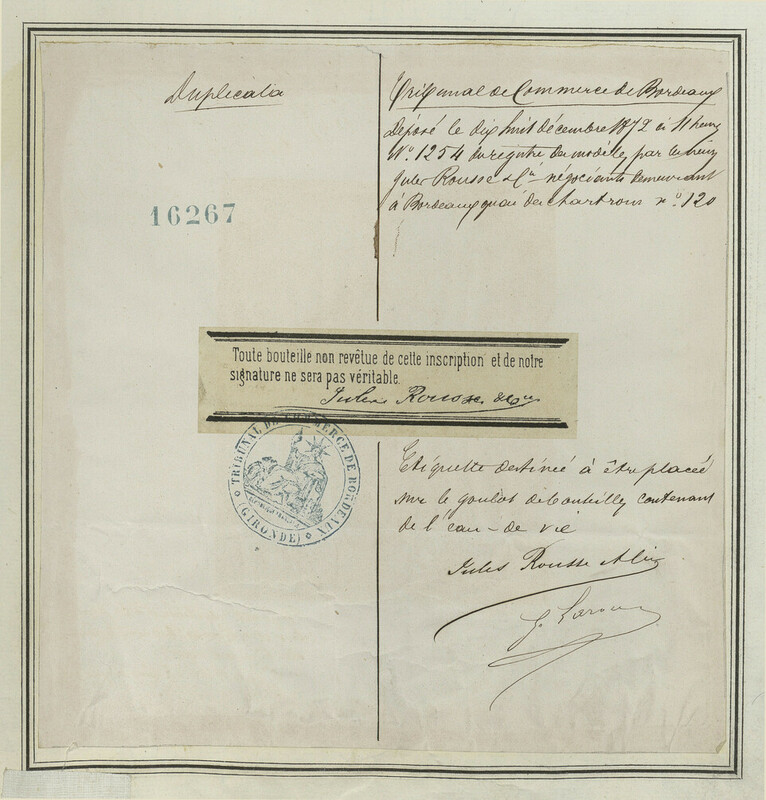 Duplicata
16267
Tribunal de Commerce de Bordeaux
Déposé le dix huit décembre 1872 à 11 heures
N° 1254 du registre des modèles, par les sieurs
Jules Rousse & Cie négociants demeurant
à Bordeaux quai des Chartrons n° 120
Toute bouteille non revêtue de cette inscription et de notre
signature ne sera pas véritable.
Jules Rousse & Cie
TRIBUNAL DE COMMERCE DE BORDEAUX
(GIRONDE)
Etiquette destinée à être placée
sur le goulot de bouteilles contenant
de l'eau-de vie
Jules Rousse & Cie